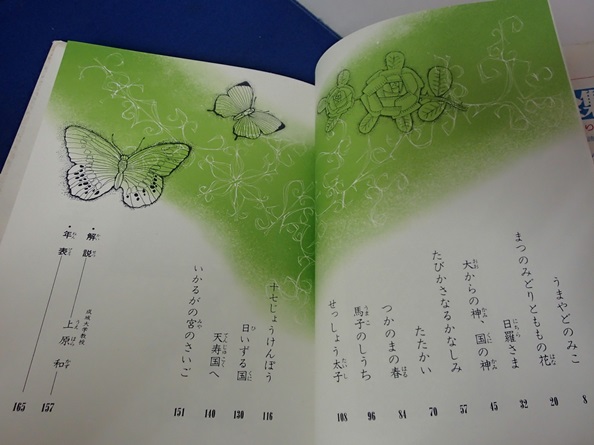 うまやどのみこ 8
まつのみどりとももの花 20
日羅さま 32
大からの神、国の神 45
たびかさなるかなしみ 57
たたかい 70
つかのまの春 84
馬子のしうち 96
せっしょう太子 108
十七じょうけんぽう 116
日いずる国 130
天寿国へ 140
いかるがの宮のさいご 151
・解説 成城大学教授 上原和 157
・年表 165